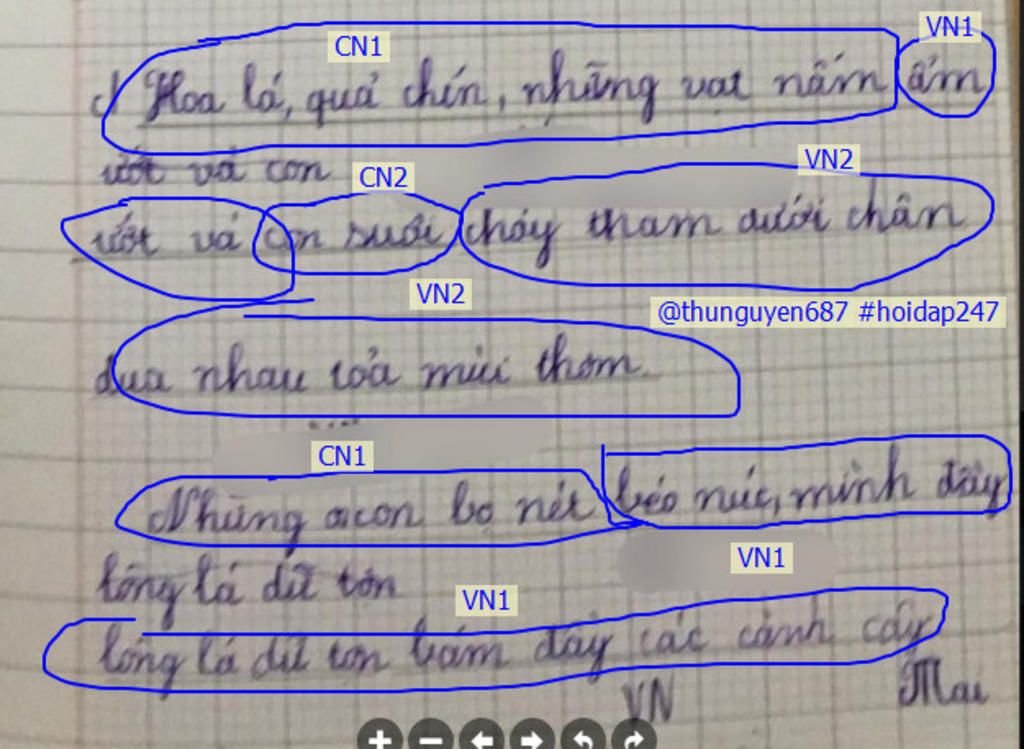 CN1 VN1
Hoa lá, quả chín, những vạt nấm ẩm
ướt và con
CN2 VN2
ướt và con suối chảy tham dưới chân
VN2
@thunguyen687 #hoidap247
đua nhau toả mùi thơm.
CN1
Những con bọ nét béo núc, mình đầy
VN1
lông lá dữ tợn
VN1
lông lá dữ tợn bám đầy các cành cây
VN